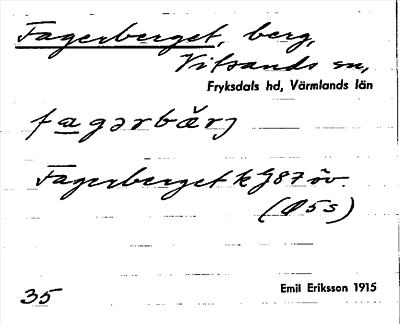 Fagerberget, berg,
Vitsands sn,
Fryksdals hd, Värmlands län
fagərbärj
Fagerberget k G87 öv.
(Ø5s)
35
Emil Eriksson 1915